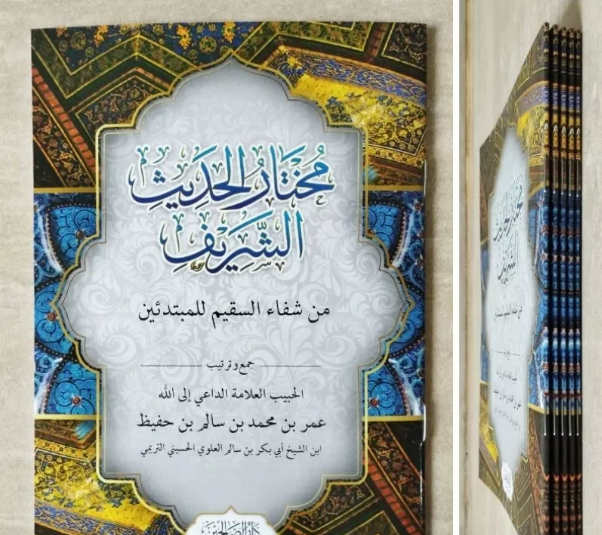 مُختَارُ الحَدِيثِ
الشَّرِيفِ
من شفاء السقيم للمبتدئين
جمع وترتيب
الحبيب العلامة الداعي إلى الله
عمر بن محمد بن سالم بن حفيظ
ابن الشيخ أبي بكر بن سالم العلوي الحسيني التريمي